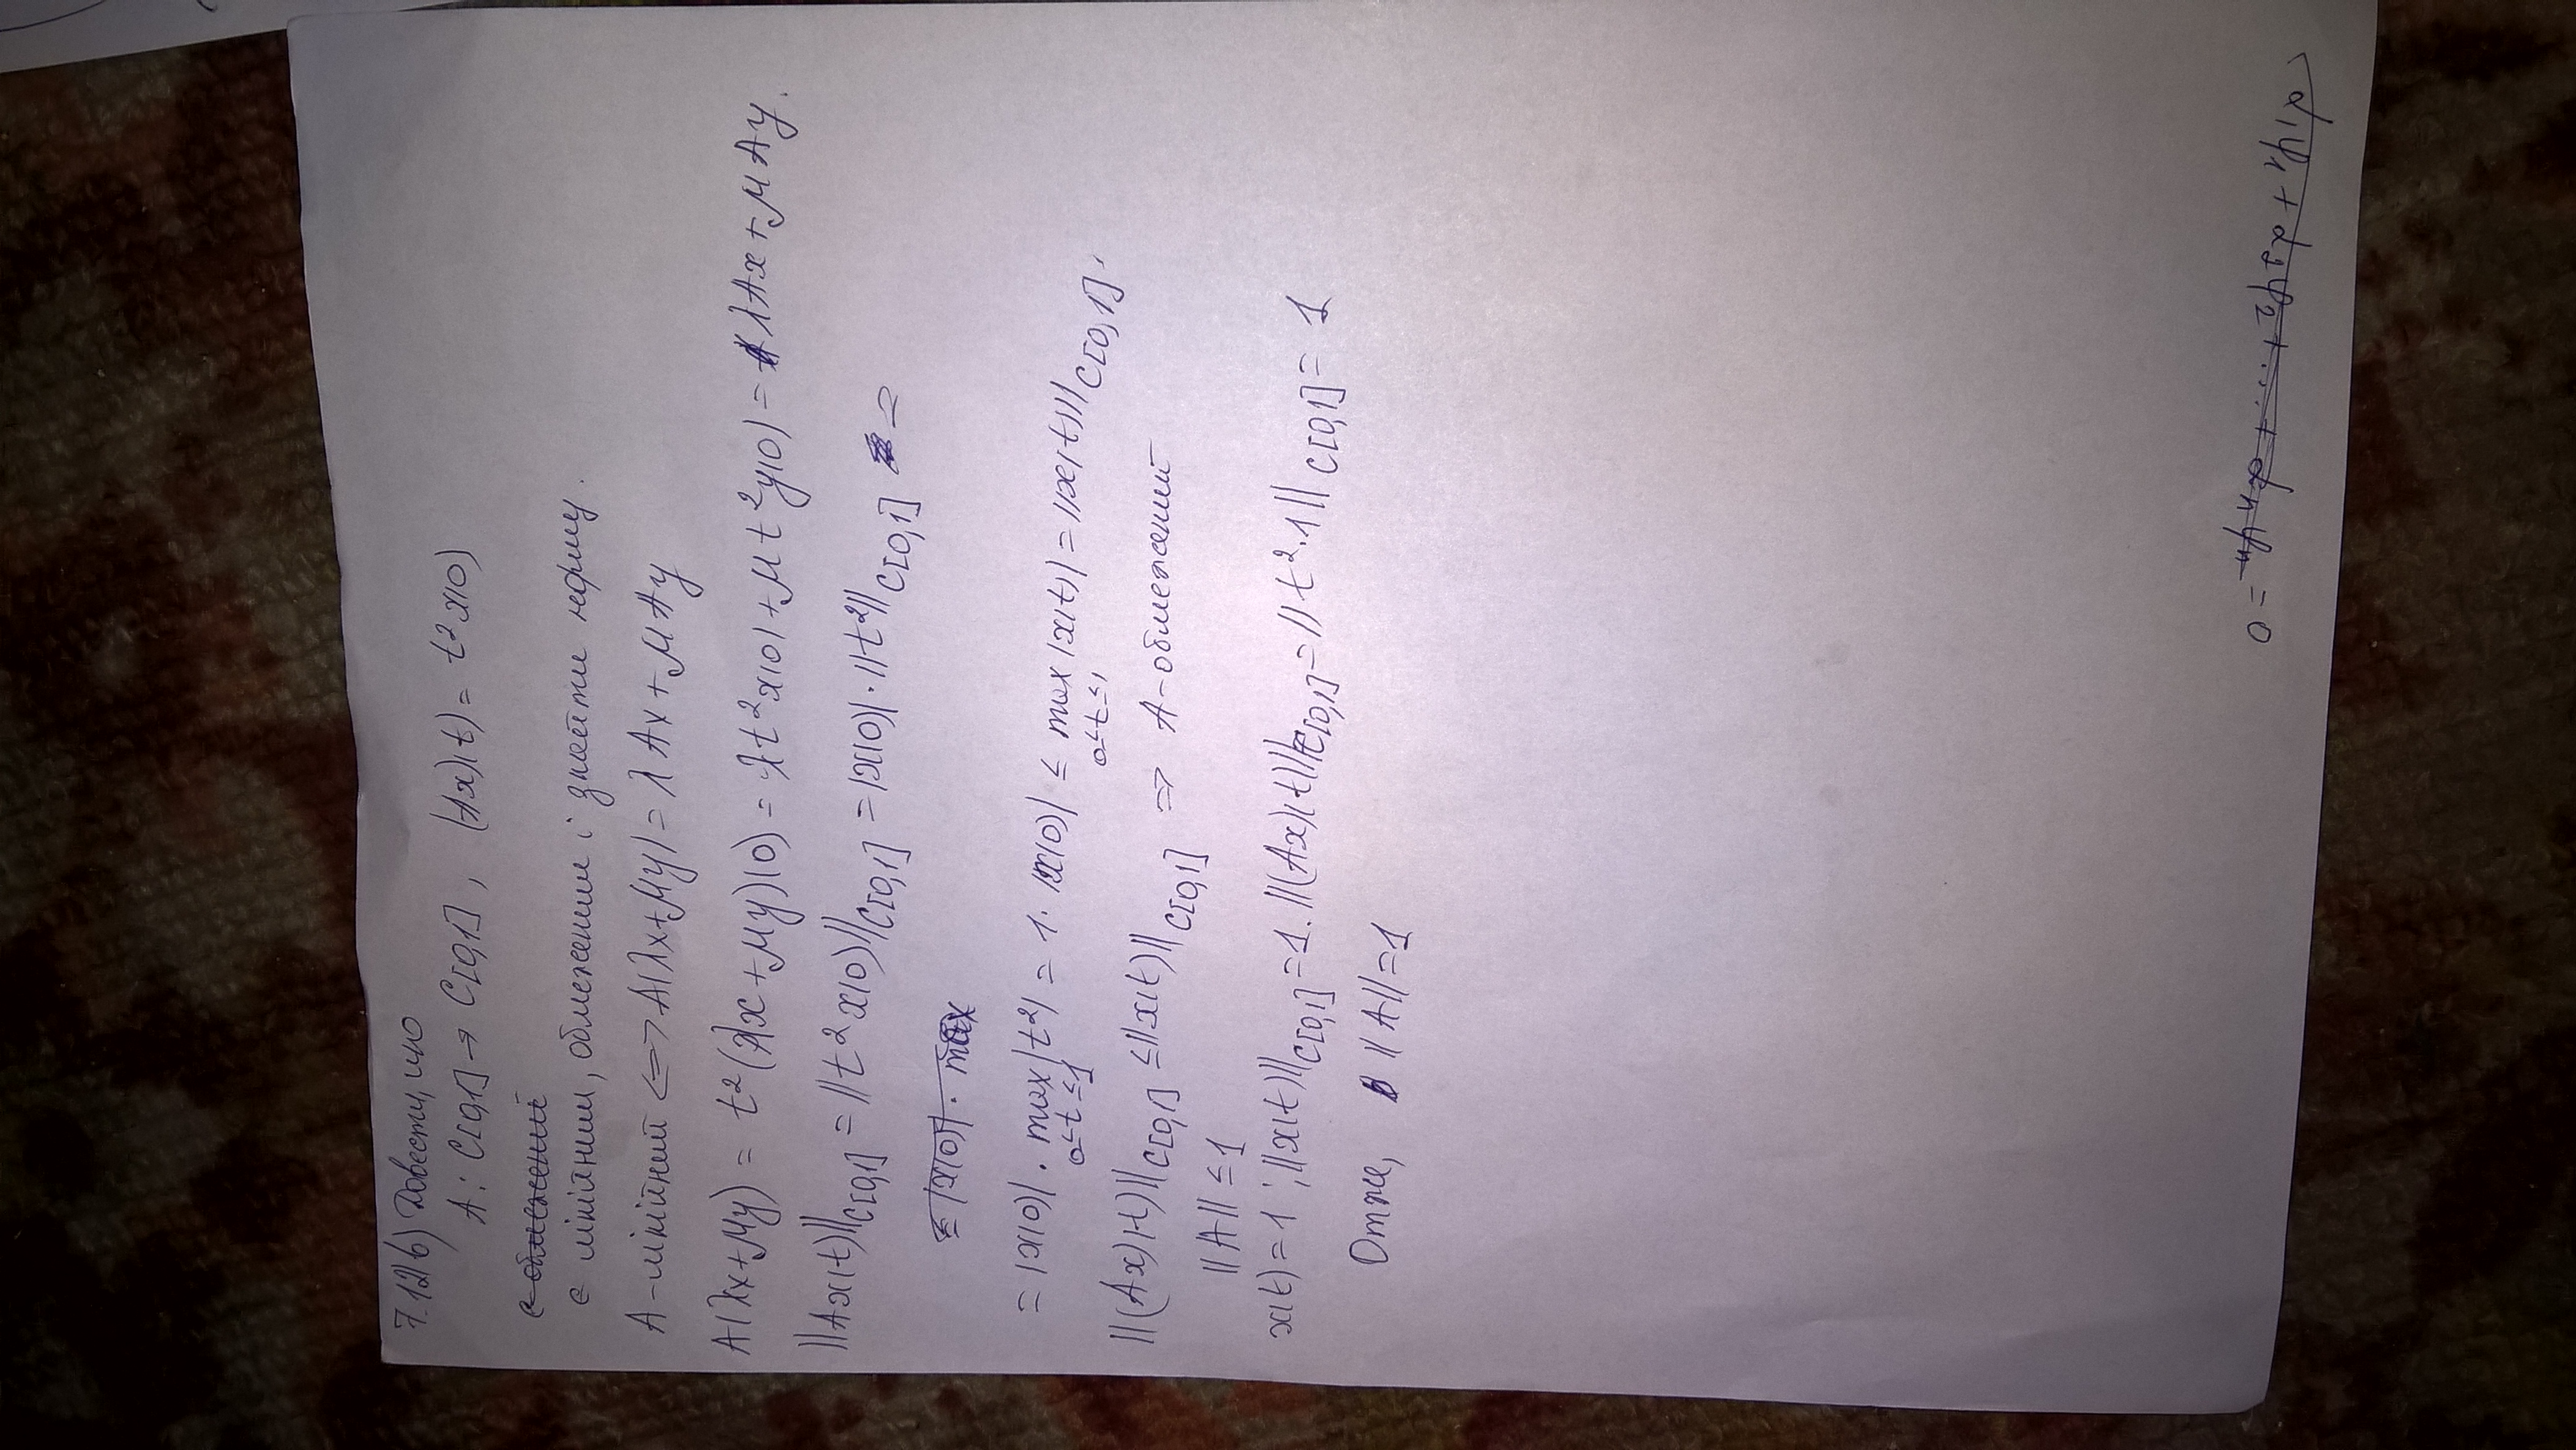 7.12(в) Довести, що
A: C[0,1] → C[0,1], (Ax)(t) = t² x(0)
є обмежений
є лінійним, обмеженим і знайти норму.
A-лінійний <=> A(λx+μy) = λAx + μAy
A(λx+μy) = t²(λx+μy)(0) = λt²x(0) + μt²y(0) = λAx + μAy.
||Ax(t)||_C[0,1] = ||t² x(0)||_C[0,1] = |x(0)| · ||t²||_C[0,1] =
= |x(0)| · max
= |x(0)| · max_{0≤t≤1} |t²| = 1 · |x(0)| ≤ max_{0≤t≤1} |x(t)| = ||x(t)||_C[0,1].
||(Ax)(t)||_C[0,1] ≤ ||x(t)||_C[0,1] => A-обмежений
||A|| ≤ 1
x(t) = 1; ||x(t)||_C[0,1] = 1. ||(Ax)(t)||_C[0,1] = ||t²·1||_C[0,1] = 1
Отже, ||A|| = 1
α₁φ₁ + α₂φ₂ + ... + αₙφₙ = 0